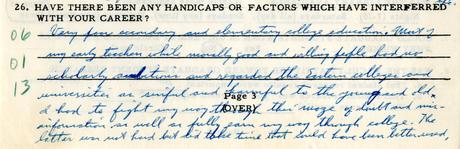 26. HAVE THERE BEEN ANY HANDICAPS OR FACTORS WHICH HAVE INTERFERRED
WITH YOUR CAREER?
06 Very poor secondary and elementary college education. Most of
my early teachers while morally good and willing people had no
01 scholarly ambitions and regarded the Eastern colleges and
13 universities as sinful and harmful to the young and old.
Page 3
I had to fight my way through this maze of doubt and mis-
(OVER)
information as well as fully earn my way through college. The
latter was not hard but did take time that could have been better used,